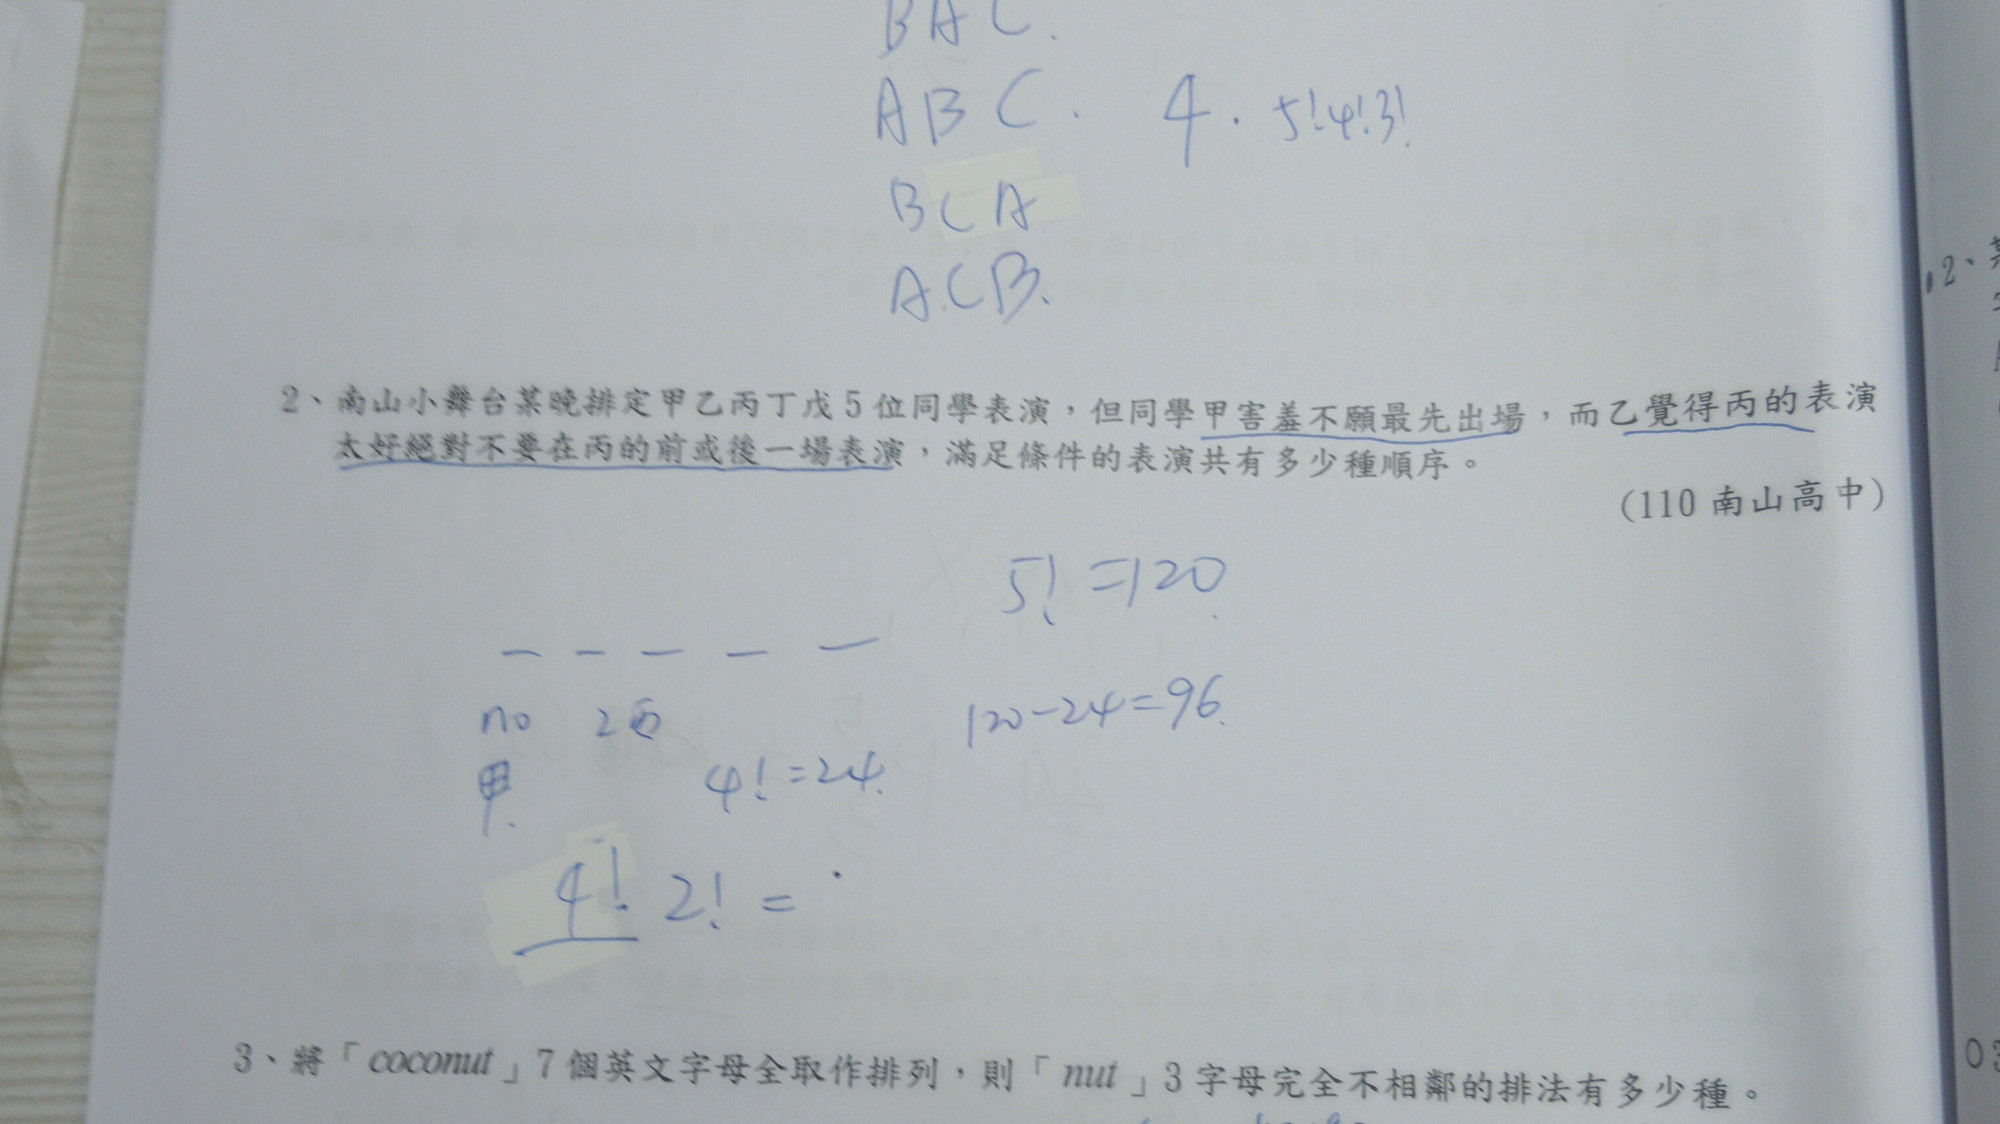 BAC.
ABC. 4. 5!4!3!
BCA
ACB.
2、南山小舞台某晚排定甲乙丙丁戊5位同學表演,但同學甲害羞不願最先出場,而乙覺得丙的表演
太好絕對不要在丙的前或後一場表演,滿足條件的表演共有多少種順序。
(110 南山高中)
5! =120.
— — — — —
no 乙丙 120-24=96.
甲. 4!=24.
4! 2! =
3、將「coconut」7個英文字母全取作排列,則「nut」3字母完全不相鄰的排法有多少種。